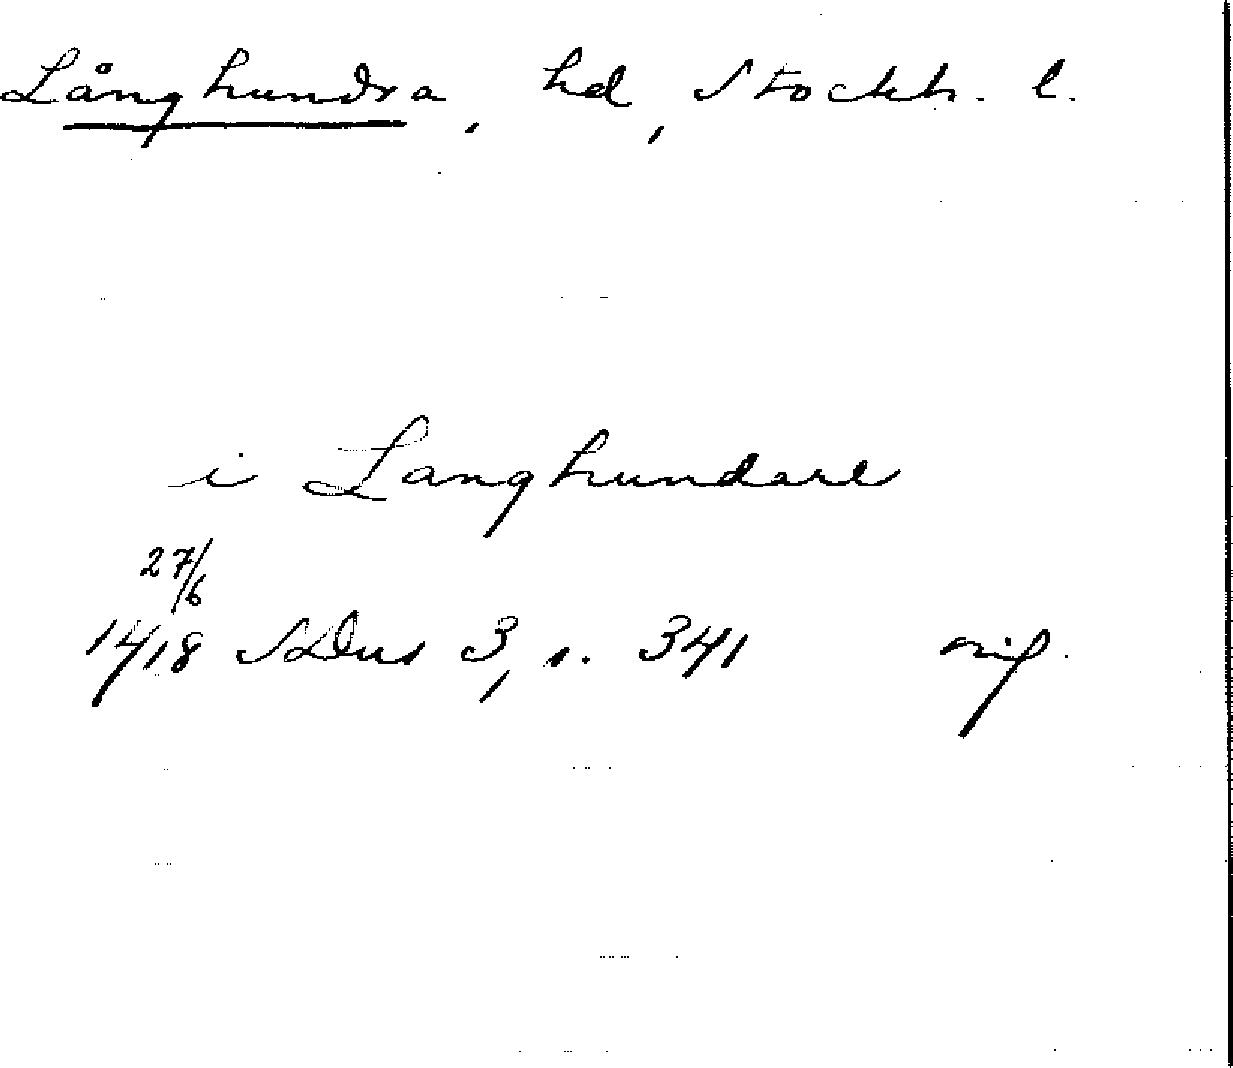 Långhundra, hd, Stockh. l.
i Langhundare
27/6
1418 SDns 3, s. 341 orig.